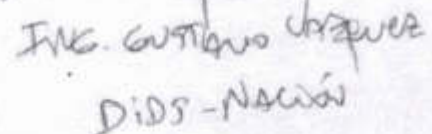 ING. GUSTAVO VAZQUEZ
DiDS-NACIÓN